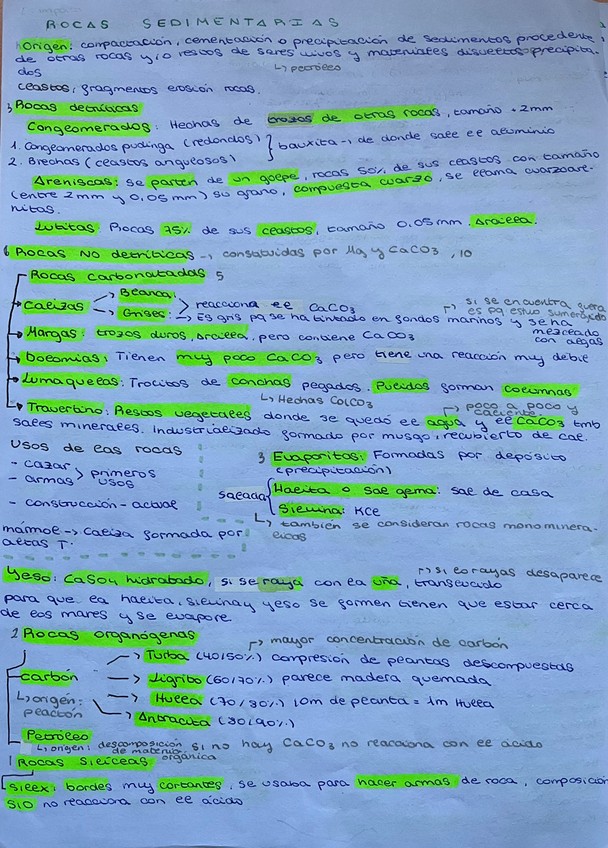 ROCAS SEDIMENTARIAS
Origen: compactación, cementación o precipitación de sedimentos procedente
de otras rocas y/o restos de sares vivos y materiales disueltos precipita-
dos ↳ petróleo
clastos, fragmentos erosión rocas.
3 Rocas detríticas
Conglomerados: Hechas de trozos de otras rocas, tamaño +2mm
1. Conglomerados pudinga (redondos) } bauxita → de donde sale el aluminio
2. Brechas (clastos angulosos)
Areniscas: se parten de un golpe, rocas 50% de sus clastos con tamaño
(entre 2mm y 0,05mm) su grano, compuesta cuarzo, se llama cuarzoare-
nitas.
Lutitas: Rocas 75% de sus clastos, tamaño 0,05mm. Arcilla.
6 Rocas No detríticas → constituidas por Mg y CaCO3, 10
Rocas carbonatadas 5
Calizas → Blanca: > reacciona el CaCO3
→ Grises: → Es gris pq se ha tintado en fondos marinos y se ha mezclado con algas
↱ si se encuentra fuera es pq estuvo sumergido
Margas: trozos duros, arcilla, pero contiene CaCO3
Dolomias: Tienen muy poco CaCO3 pero tiene una reacción muy débil
Lumaquelas: Trocitos de conchas pegados. Pulidos forman columnas
↳ Hechas CaCO3 ↱ poco a poco y caliente
Travertino: Restos vegetales donde se quedó el agua y el CaCO3 tmb
sales minerales. Industrializado formado por musgo, recubierto de cal.
Usos de las rocas
- cazar
- armas > primeros usos
- construcción - actual
mármol → Caliza formada por
altas Tª
3 Evaporitas: Formadas por depósito
(precipitación)
salada { Halita o sal gema: sal de casa
Silvina: KCl
↳ también se consideran rocas monominera-
licas
Yeso: CaSO4 hidrabado, si se raya con la uña, translucido
↱ si lo rayas desaparece
para que la halita, silvina y yeso se formen tienen que estar cerca
de los mares y se evapore.
2 Rocas organógenas ↱ mayor concentración de carbón
carbón → Turba (40/50%) compresión de plantas descompuestas
↳ origen: plactón → Lignito (60/70%) parece madera quemada
→ Hulla (70/80%) 10m de planta = 1m Hulla
→ Antracita (80/90%)
Petróleo
↳ origen: descomposición de materia orgánica. si no hay CaCO3 no reacciona con el ácido
1 Rocas Silíceas
Silex: bordes muy cortantes, se usaba para hacer armas de roca, composición
SiO no reacciona con el ácido